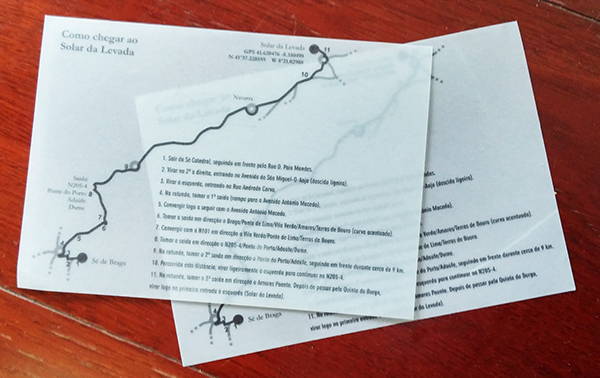 Como chegar ao
Solar da Levada
Solar da Levada
11
10
Navarra
Saída
N205-4
Ponte do Porto
Adaúfe
Dume
8
7
6
Sé de Braga
1. Sair da Sé Catedral, seguindo em frente pela Rua D. Paio Mendes.
2. Virar na 2ª à direita, entrando na Avenida de São Miguel-O-Anjo (descida ligeira).
3. Virar à esquerda, entrando na Rua Andrade Corvo.
4. Na rotunda, tomar a 1ª saída (rampa para a Avenida António Macedo).
5. Convergir logo a seguir com a Avenida António Macedo.
6. Tomar a saída em direcção a Braga/Ponte de Lima/Vila Verde/Amares/Terras de Bouro (curva acentuada).
7. Convergir com a N101 em direcção a Vila Verde/Ponte de Lima/Terras de Bouro.
8. Tomar a saída em direcção a N205-4/Ponte do Porto/Adaúfe/Dume.
9. Na rotunda, tomar a 2ª saída em direcção a Ponte do Porto/Adaúfe, seguindo em frente durante cerca de 9 km.
10. Percorrida esta distância, virar ligeiramente à esquerda para continuar na N205-4.
11. Na rotunda, tomar a 3ª saída em direcção a Amares Poente. Depois de passar pela Quinta do Burgo,
virar logo na primeira entrada à esquerda (Solar da Levada).
Terras de Bouro (curva acentuada).
seguindo em frente durante cerca de 9 km.
continuar na N205-4.
Depois de passar pela Quinta do Burgo,
Sé de Braga